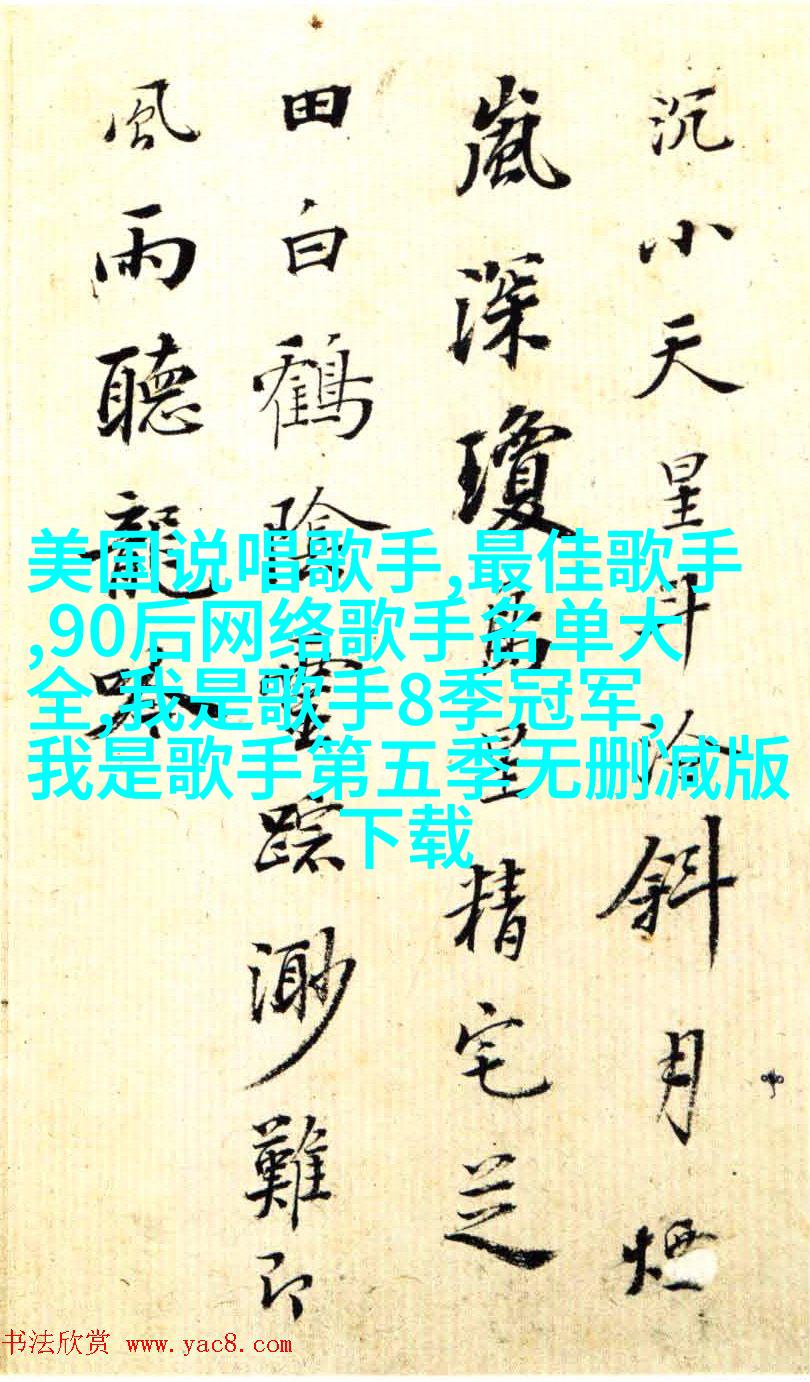 沉小天星斗冷斜月煙
嵐深瓊島星精宅芝
田白鶴陰靈踪渺難即
風雨聽龍
美国说唱歌手,最佳歌手
,90后网络歌手名单大
全,我是歌手8季冠军,
我是歌手第五季无删减版
下载
书法欣赏 www.yac8.com